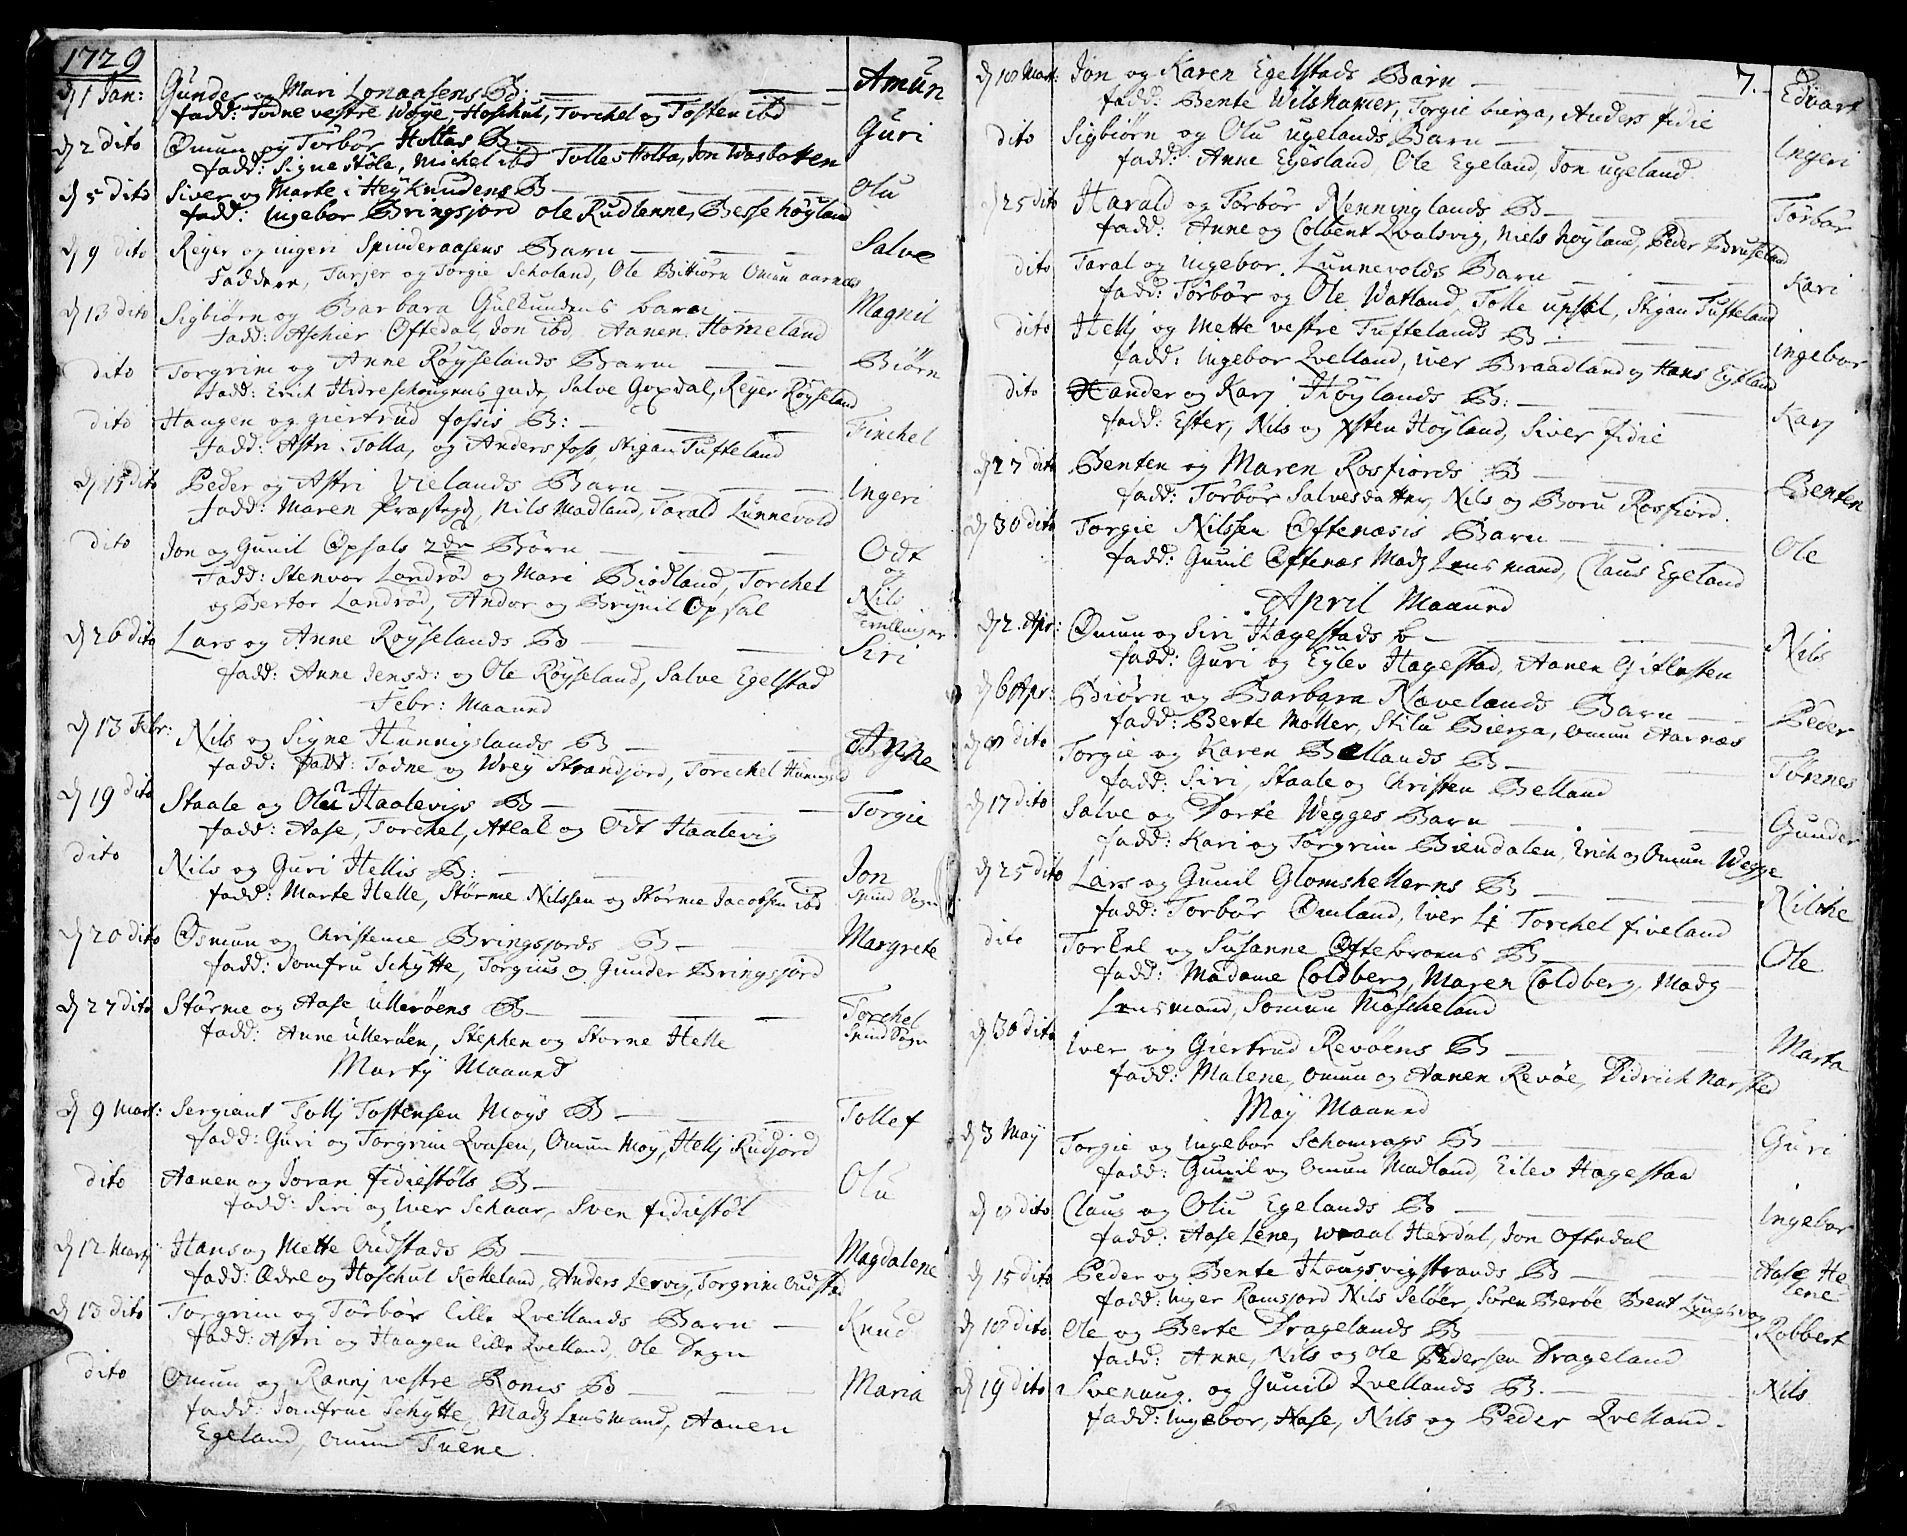 1729
d 1 Jan: Gunder og Mari Lonaasens B: Amun
fadd: Todne vestre Woge, Hoschul, Torchel og Tosten ibd
d 2 dito Omun og Torbor Holtas B Guri
fadd: Signe Støle, Michel ibd Tolles Holta, Jon Wasboten
d 5 dito Siver og Marte i Heyknudens B Olu
fadd: Ingebor Bringsjord Ole Rudlenne, Besse høyland
d 9 dito Reyer og ingeri Spinderaasens Barn Salve
Faddere, Tarjer og Torgie Scholand, Ole Bitiørn Omun aarnes
d 13 dito Sigbiørn og Barbara Gulkundens barn Magnil
fadd: Aschier Oftedal Jon ibd, Aanen Homeland
dito Torgrim og Anne Røyselands Barn Biørn
fadd: Erich Hidreschougens gudr, Salve Goxdal, Reyer Røyseland
dito Haagen og giertrud fossis B: Finchel
fadd: Astri Tolla, og Anders foss, Stigan Tufteland
d 15 dito Peder og Astri Vielands Barn Ingeri
fadd: Maren Præstegd, Nils Madland, Tarald Lunnevold
dito Jon og Gunil Opsals 2de Børn Odt
og
fadd: Stenvor Landrød og Mari Biodland, Torchel Nils
og Bertor Landrød, Andor og Brynil Opsal Tvillinger
d 26 dito Lars og Anne Røyselands B Siri
fadd: Anne Jensd: og Ole Røyseland, Salve Egelstad
Febr: Maaned
d 13 Febr: Nils og Signe Hunnigslands B Anne
fadd: fadd: Todne og Wrey Strandjord, Torchel
d 19 dito Staale og Olu Haalevigs B Torgie
fadd: Aase, Torchel, Atlal og Odt Haalevig
dito Nils og Guri Hellis B: Jon
fadd: Marte Helle, Størme Nilssen og Størme Jacobsen ibd Spind Sogn
d 20 dito Osmun og Christence Bringsjords B Margrete
fadd: Jomfru Schytte, Torgius og Gunder Bringsjord
d 27 dito Størme og Aase Ullerøens B Torchel
fadd: Anne Ullerøen, Stephen og Storne Helle Spind Sogn
Martij Maaned
d 9 Mart: Sergiant Tollj Tostensen Moys B Tollef
fadd: Guri og Torgrim Qvasen, Omun Moy, Hellj Rudjord
dito Aanen og Joran fidiestøls B Olu
fadd: Siri og Iver Schaar, Sven fidiestøl
d 12 Martj Hans og Mette Oudstads B Magdalene
fadd: Odel og Hoschul Kolleland, Anders Lervig, Torgrim Oudstad
d 13 dito Torgrim og Torbor lille Qvellands Barn Knud
fadd: Astri og Haagen lille Qvelland, Ole Degn
dito Omun og Rannj vestre Roms B Maria
fadd: Jomfrue Schytte, Madz Lensmand, Aanen
Egeland, Omun Tuene
7.
d 18 Mart: Jon og Karen Egelstads Barn Eduart
fadd: Bente Wilshamer, Torgie bierga, Anders fidie
dito Sigbiørn og Olu ugelands Barn Ingeri
fadd: Anne Egesland, Ole Egeland, Jon ugeland
d 25 dito Harald og Torbor Nenninglands B Torbor
fadd: Anne og Colbent Qvalsvig, Niels høyland, Peder Bruseland
dito Taral og Ingebor Lunnevolds Barn Kari
fadd: Torbor og Ole Watland, Tolle upsal, Stigan Tufteland
dito Hellj og Mette vestre Tuftelands B Ingebor
fadd: Ingebor Qvelland, Iver Braadland og Hans Egeland
dito Hander og Karj Høylands B: Karj
fadd: Ester, Nils og Østen Høyland, Siver fidie
d 27 dito Benten og Maren Rosfiords B Benten
fadd: Torbor Salvesdatter, Nils og Boru Rosfiord
d 30 dito Torgie Nilssen Oftenæsis Barn Ole
fadd: Gunil Oftenæs Madz Lensmand, Claus Egeland
April Maaned
d 2 Apr: Omun og Siri Hagestads b Nils
fadd: Guri og Eylev Hagestad, Aanen Gitlesen
d 6 Apr: Biørn og Barbara Nævelands Barn Peder
fadd: Berte Møller, Stilu Bierga, Omun Aarnæs
d 8 dito Torgie og Karen Bellands B Tønnes
fadd: Siri, Staale og Christen Belland
d 17 dito Salve og Dorte Wegges Barn Gunder
fadd: Kari og Torgrim Biendalen, Erich og Omun Wegge
d 25 dito Lars og Gunil Glomshellerns B Nilche
fadd: Torbor Omland, Iver Li Torchel fiveland
dito Torkel og Susanne Oftebroens B Ole
fadd: Madame Coldberg, Maren Coldberg, Madz
Lensmand, Somun Møscheland
d 30 dito Iver og Giertrud Revøens B Marta
fadd: Malene, Omun og Aanen Revøe, Didrich Narsted
Maÿ Maaned
d 3 Maÿ Torgie og Ingebor Schomrags B Guri
fadd: Gunil og Omun Madland, Eilev Hagestad
d 8 dito Claus og Olu Egelands B Ingebor
fadd: Aase Lene, Wraal Herdal, Jon Oftedal
d 15 dito Peder og Bente Hougsvigstrands B Aase He-
lene
fadd: Inger Ramsjord Nils Seløer, Søren Berøe Bent Lyngsvog
d 18 dito Ole og Berte Dragelands B Robbert
fadd: Anne, Nils og Ole Pedersen Drageland
d 19 dito Svenung og Gunild Qvellands B. Nils
fadd: Ingebor, Aase, Nils og Peder Qvelland